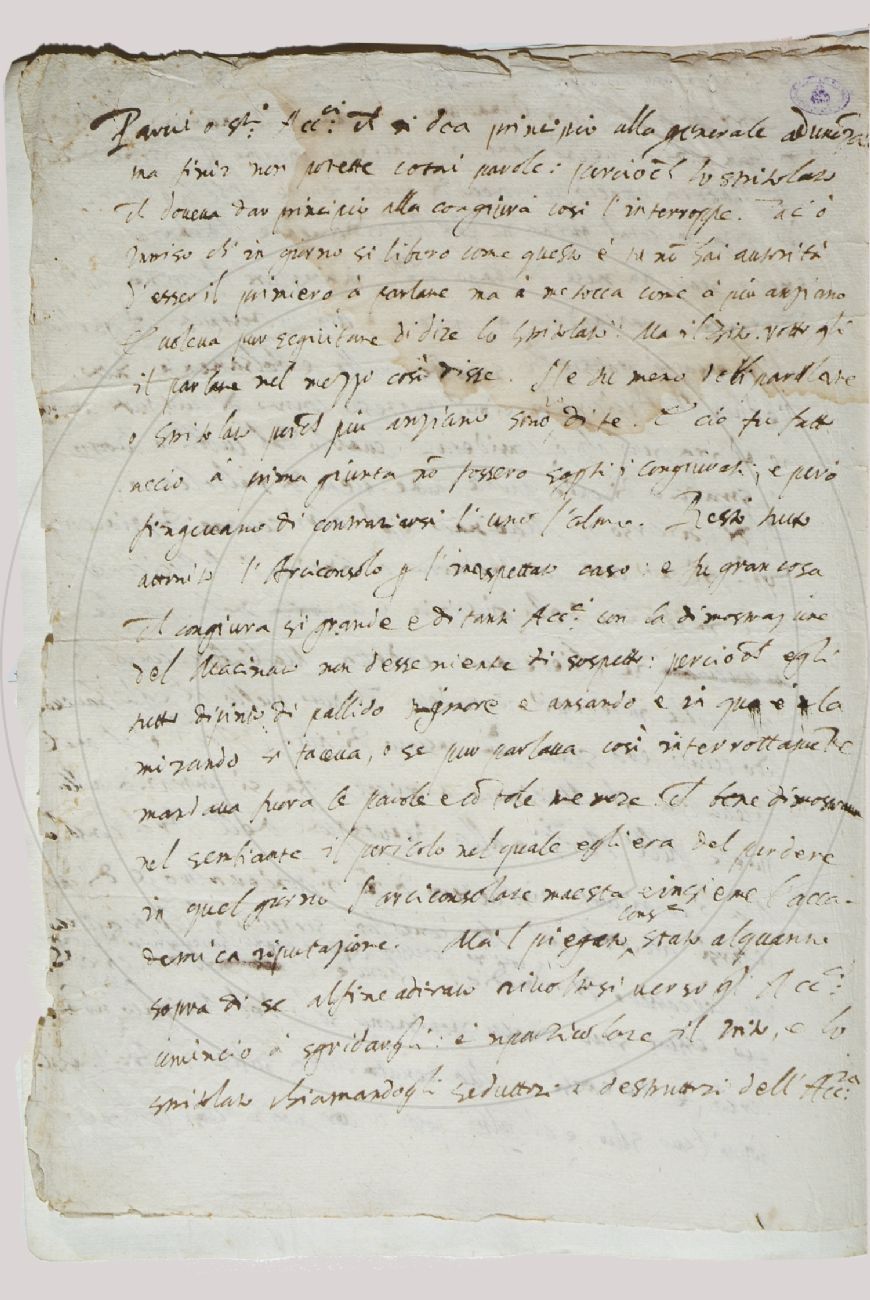 Parvi o st.i Acc.ci ch si dea principio alla generale adunãza
ma finir non potette cotai parole: perciocħ lo stritolato
ch doueua dar principio alla congiura così l'interroppe. Taci ò
Intriso ch' in giorno si libero come questo è tu nõ hai autorità
d'esser il primiero à parlare ma à me tocca come à più anziano
E uoleua pur seguitare di dire lo stritolato: Ma il Trito. rottogli
il parlare nel mezzo così disse. Ne tu meno deui parlare
o stritolato perch più anziano sono di te. E ciò fu fatto
accio à prima giunta nõ fossero scoperti i congiurati, e però
fingeuano di contrariarsi l'uno l'altro. Restò tutto
attonito l'Arciconsolo p l'inaspettato caso: e fu gran cosa
ch congiura si grande e di tanti Acc.ci con la dimostrazione
del Macinato non desse niente di sospetto: perciocħ egli
tutto dipinto di pallido timore e ansando e in qua e in la
mirando si taceua, o se pur parlaua così interrottamẽte
mandaua fuora le parole e cõ tale ch bene dimostraua
nel sembiante il pericolo nel quale egli era del perdere
in quel giorno l'arciconsolare maestà e insieme l'acca-
demica riputazione. Ma l stato alquanto
sopra di se alfine adirato riuoltosi uerso gl' Acc.ci
cominciò à sgridargli: e in particolare il Trito, e lo
stritolato chiamandogli seduttori e destruttori dell'Acc.za